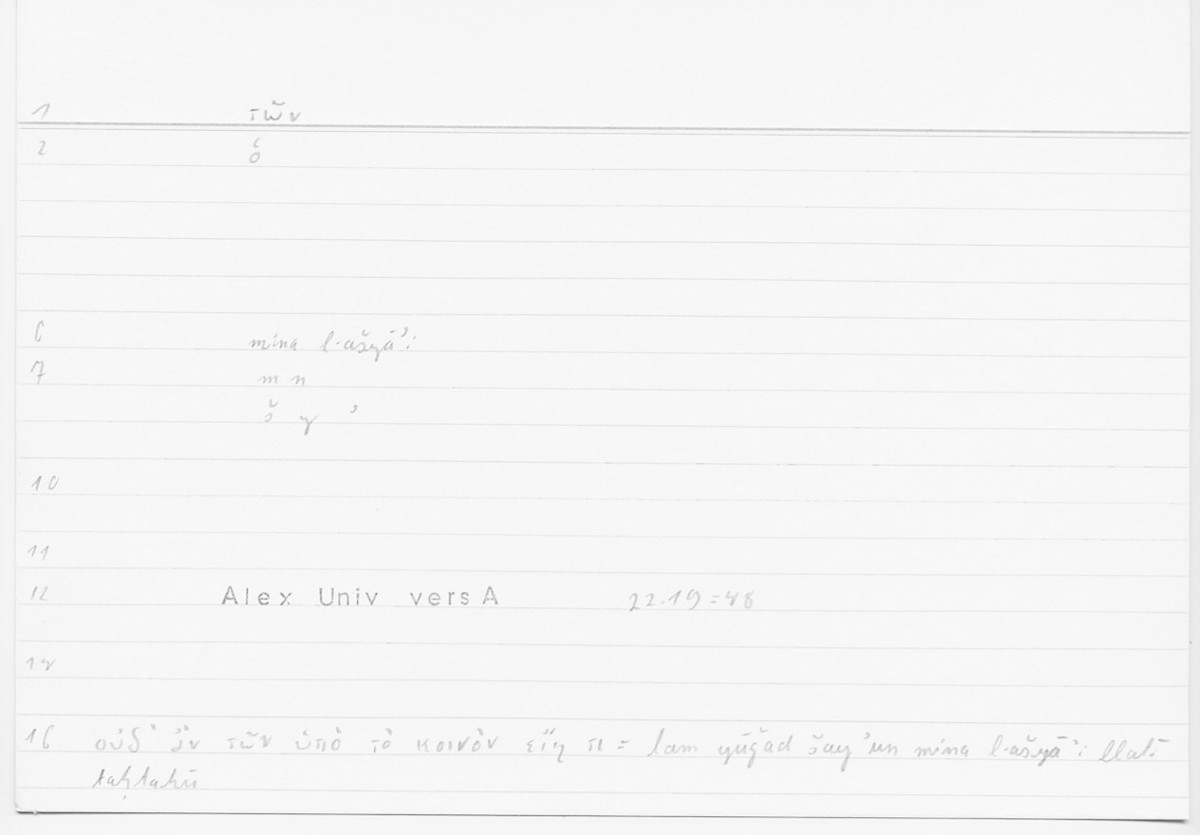 1 τῶν
2 ὁ
6 mina l-ašyāʾi
7 m n
š y ʾ
10
11
12 Alex Univ vers A 22.19 = 48
14
16 οὐδ᾽ ἂν τῶν ὑπὸ τὸ κοινὸν εἴη τι = lam yūǧad šayʾun mina l-ašyāʾi llatī
taḥtahū